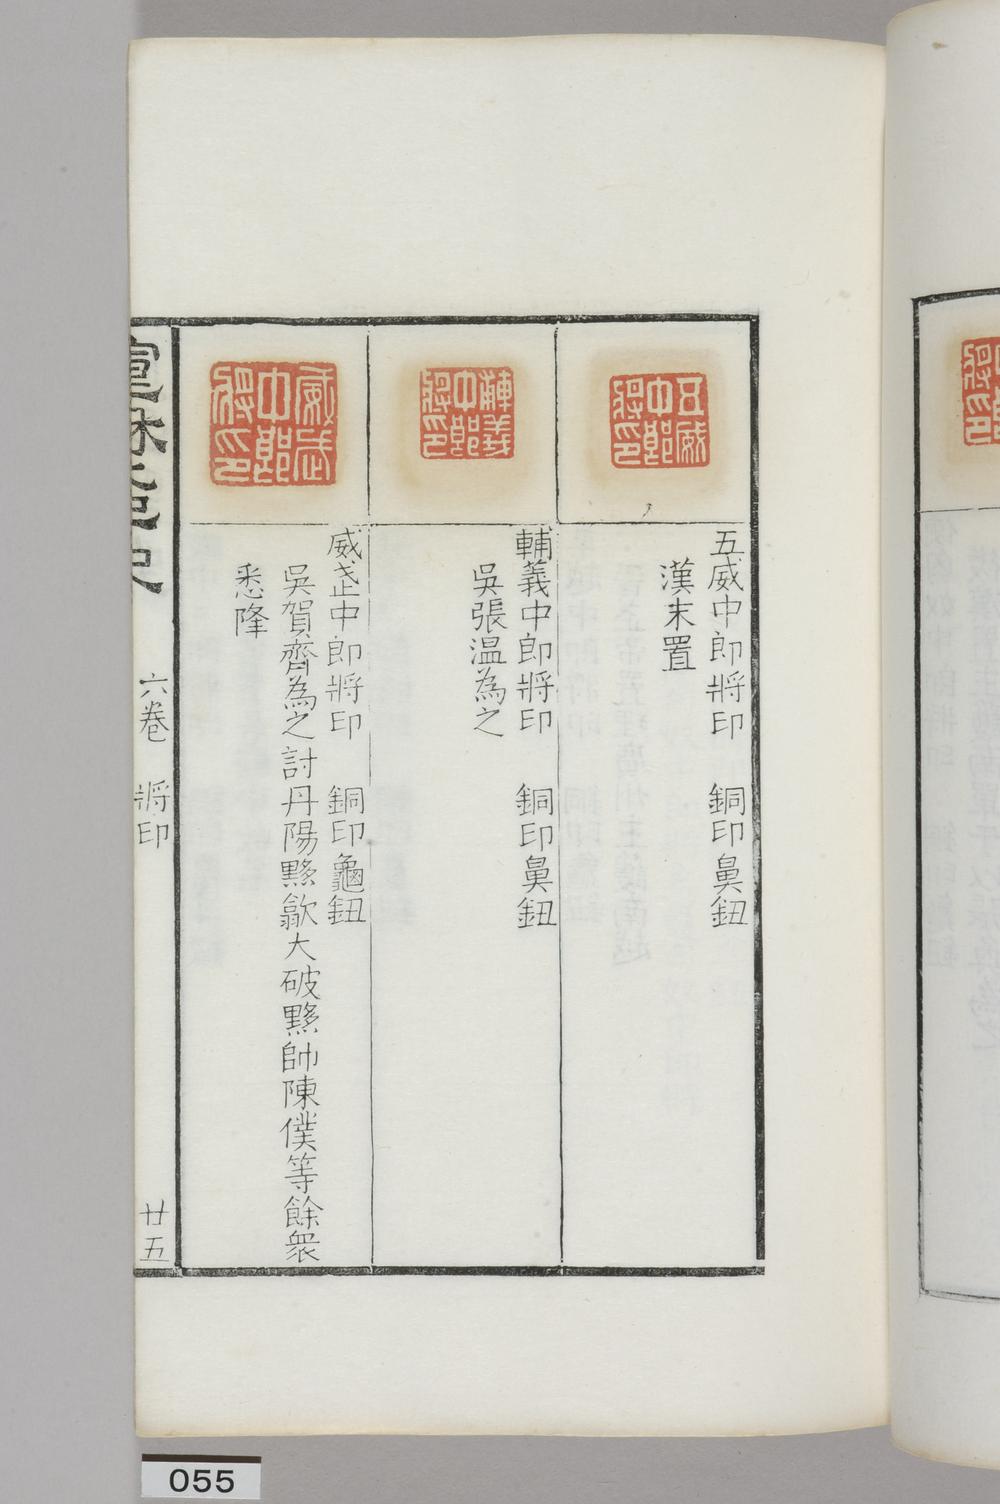 五威中郎將印
五威中郎將印　銅印鼻鈕
漢末置
輔義中郎將印
輔義中郎將印　銅印鼻鈕
吳張温為之
威武中郎將印
威武中郎將印　銅印龜鈕
吳賀齊為之討丹陽黟歙大破黟帥陳僕等餘衆
悉降
六卷　將印
廿五
055